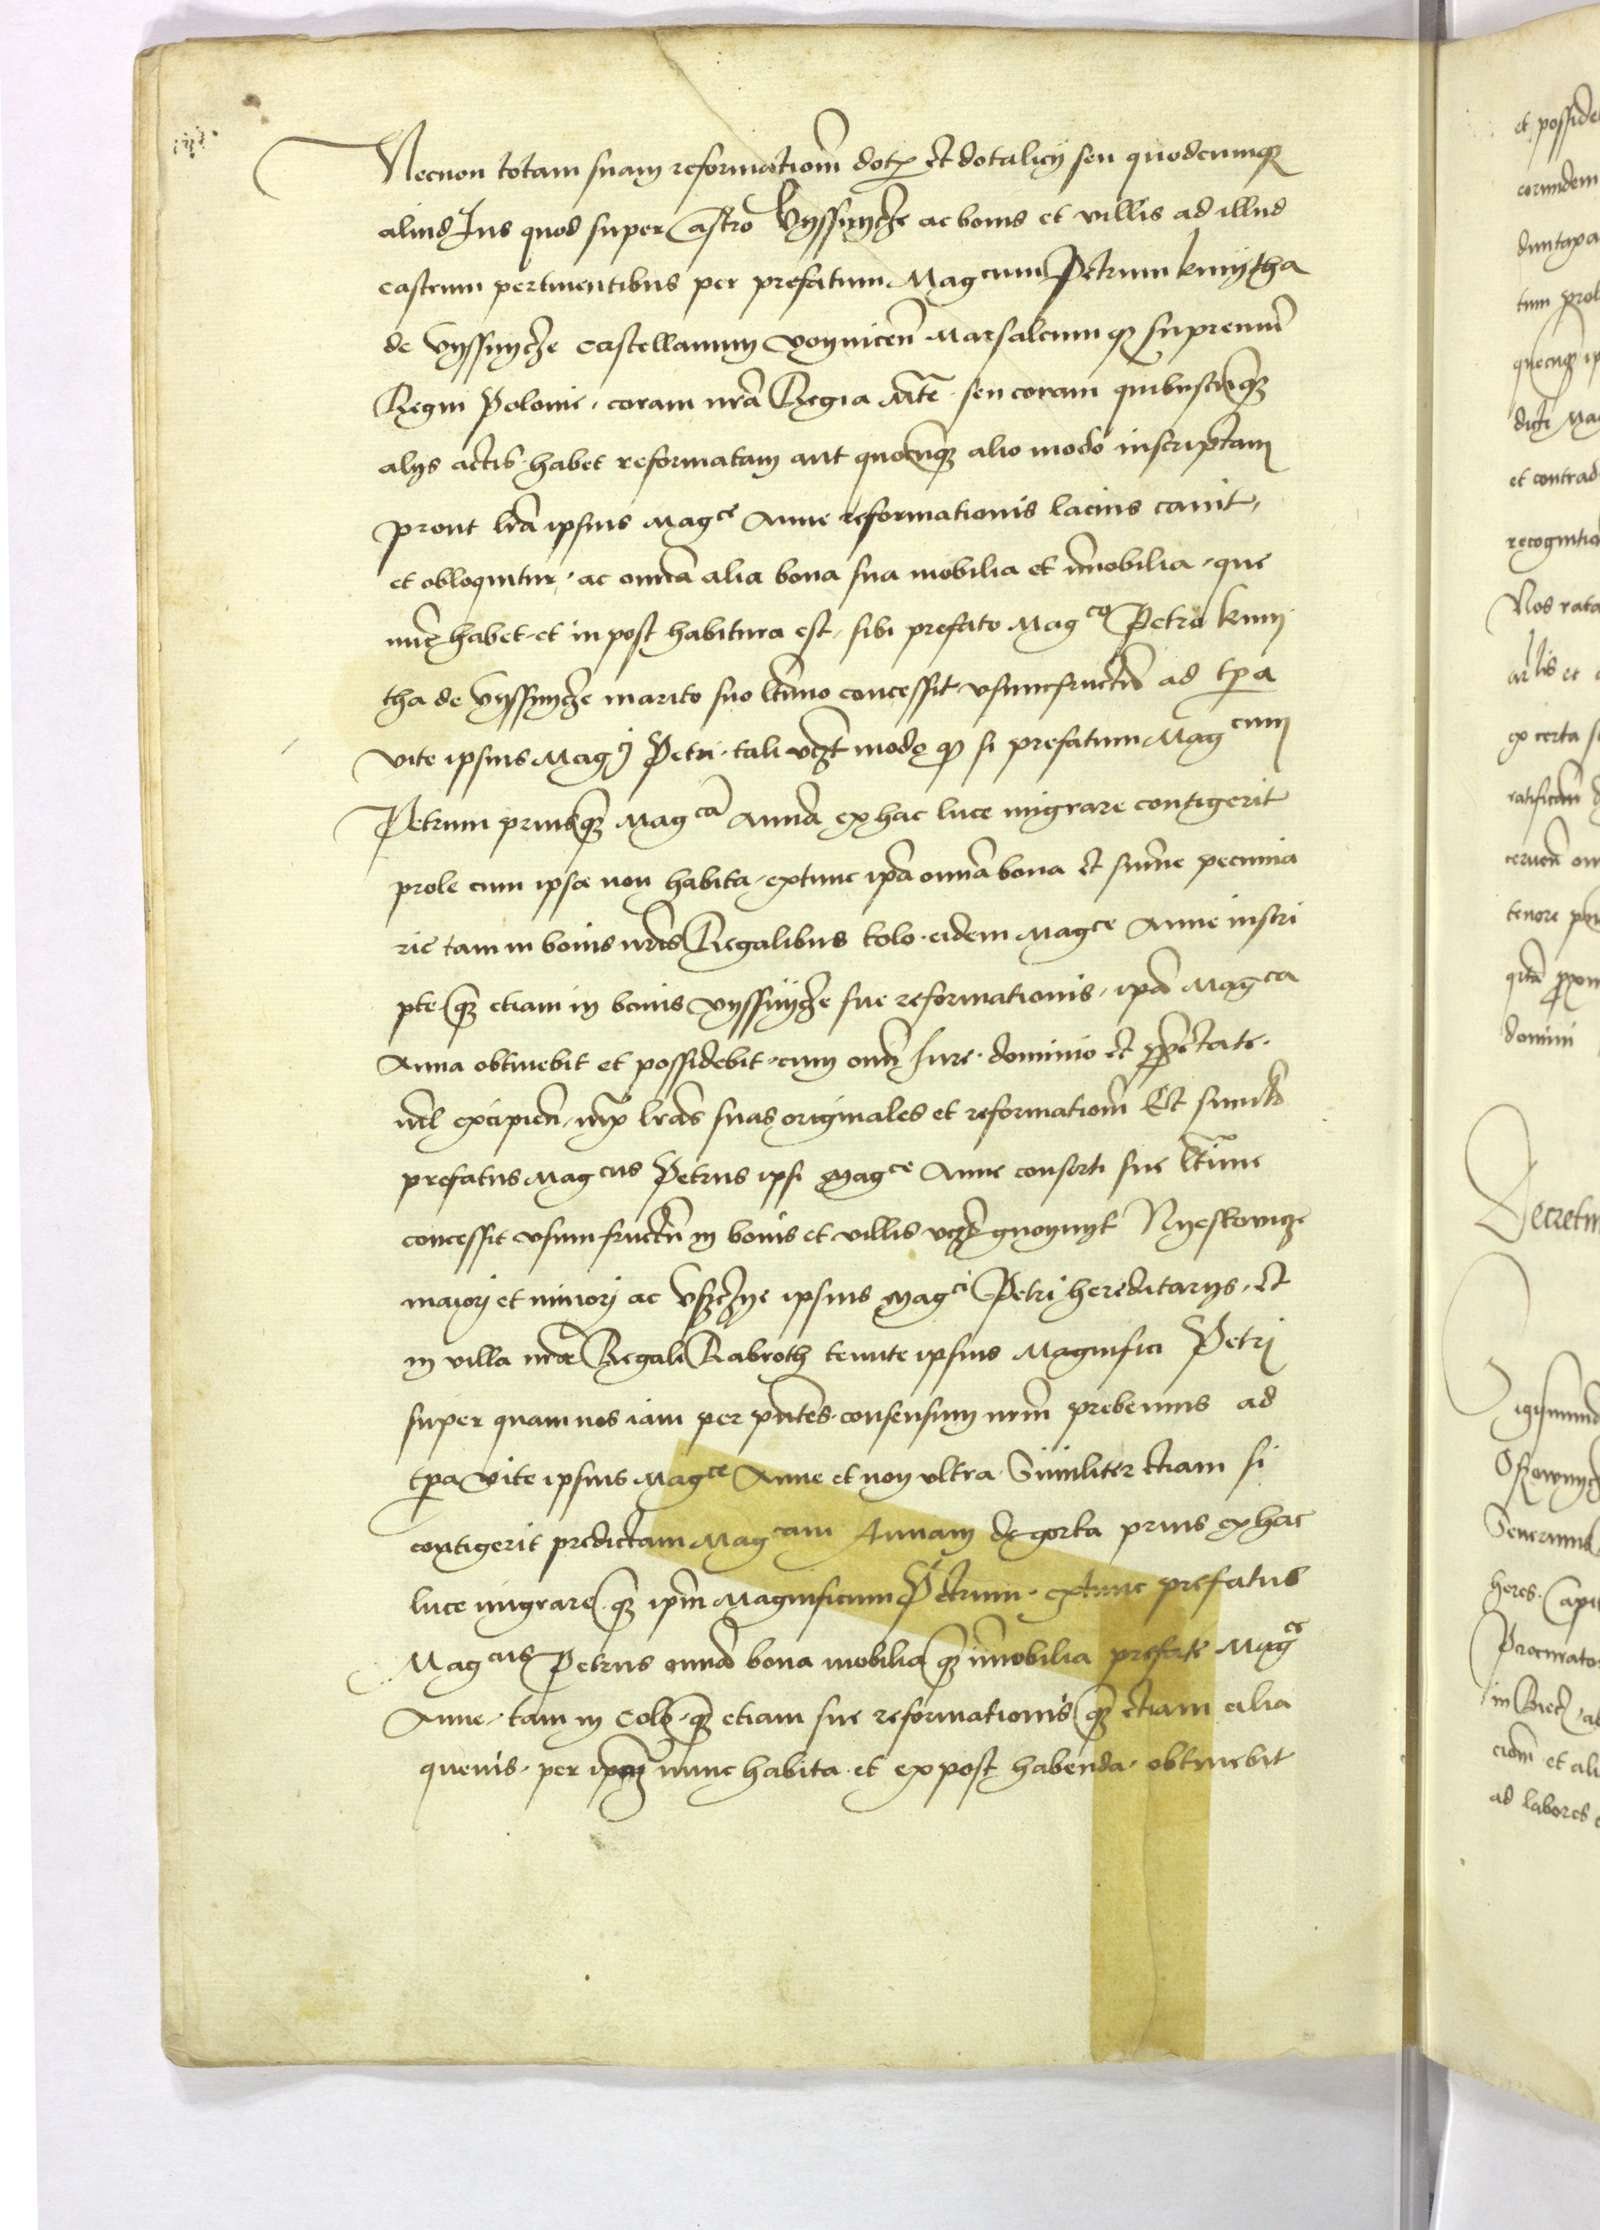 Necnon totam suam reformationem dotis et dotalicij seu quodcumque
aliud Jus quod super Castro Vyssnycze ac bonis et villis ad illud
castrum pertinentibus per prefatum Magcum Petrum kmytha
de Vyssnycze castellanum voynicen Marsalcumque supremum
Regni Polonie, coram nra Regia Mte seu coram quibuscumque
alijs actis habet reformatam aut quocumque alio modo inscriptam
prout lra ipsius Magce Anne reformationis lacius canit,
et obloquitur, ac omnia alia bona sua mobilia et immobilia, que
nunc habet et in post habitura est, sibi prefato Magco Petro kmy
tha de Vyssnycze marito suo ltimo concessit vsumfructum ad tpa
vite ipsius Magci Petri, tali vczt modo q si prefatum Magcum
Petrum priusque Magca Anna ex hac luce migrare contigerit
prole cum ipsa non habita, extunc ipa omnia bona et summe pecunia
rie tam in bonis nris Regalibus kolo eidem Magce Anne inscri
pte que etiam in bonis Vyssnycze sue reformationis, ipa Magca
Anna obtinebit et possidebit, cum omni Jure, dominio et proprietate,
nil excipien, iuxta lras suas originales et reformationem Et similr
prefatus Magcus Petrus ipsi Magce Anne consorti sue ltime
concessit vsumfructum in bonis et villis vczt gnoynyk Nyeskowicze
maiori et minori ac Vszczye ipsius Magci Petri hereditarijs, et
in villa nra Regali Kabroth tenute ipsius Magnifici Petri
super quam nos iam per pntes consensum nrm prebemus ad
tpa vite ipsius Magce Anne et non vltra. Similiter etiam si
contigerit predictam Magcam Annam de gorka prius ex hac
luce migrare, que ipm Magnificum Petrum, extunc prefatus
Magcus Petrus omnia bona mobilia que immobilia prefate Magce
Anne, tam in Colo, que etiam sue reformationis que etiam alia
queuis, per ipam nunc habita et ex post habenda, obtinebit
et posside
eorundem
duntaxa
tum prol
quecumque ip
dicti Mag
et contrad
recognitio
Nos rata
ex certa s
tenore pn
domini
Decretum
Sigismund
heres. Capi
Procurator
ad labores